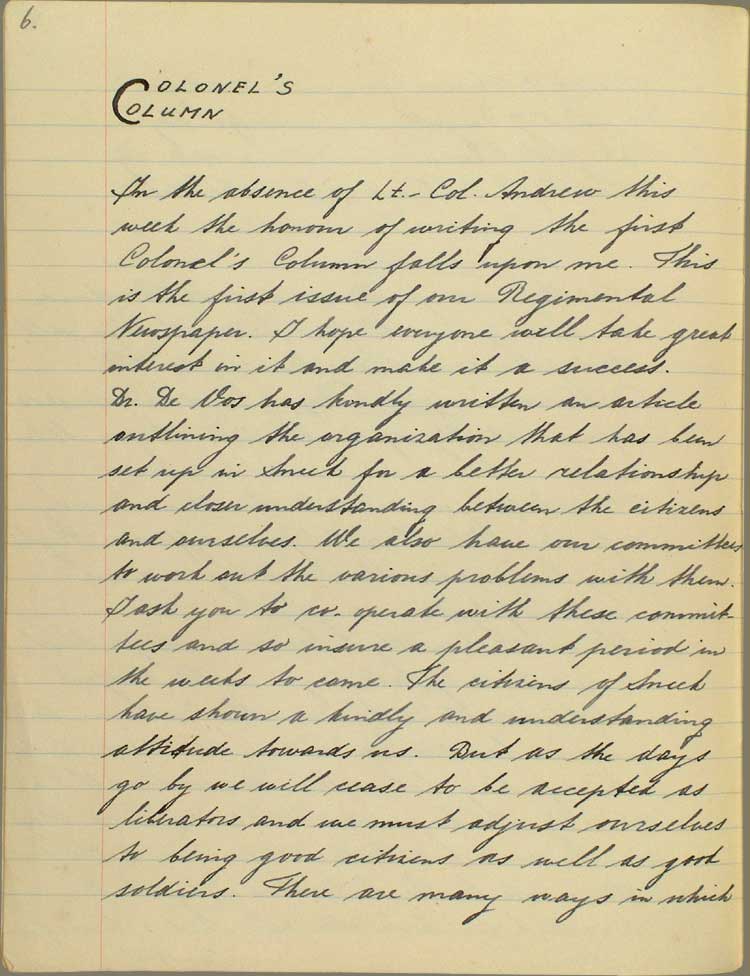 6.
COLONEL'S
COLUMN
In the absence of Lt.- Col. Andrew this
week the honour of writing the first
Colonel's Column falls upon me. This
is the first issue of our Regimental
Newspaper. I hope everyone will take great
interest in it and make it a success.
Dr. De Vos has kindly written an article
outlining the organization that has been
set up in Sneek for a better relationship
and closer understanding between the citizens
and ourselves. We also have our committees
to work out the various problems with them.
I ask you to co-operate with these commit-
tees and so insure a pleasant period in
the weeks to come. The citizens of Sneek
have shown a kindly and understanding
attitude towards us. But as the days
go by we will cease to be accepted as
liberators and we must adjust ourselves
to being good citizens as well as good
soldiers. There are many ways in which